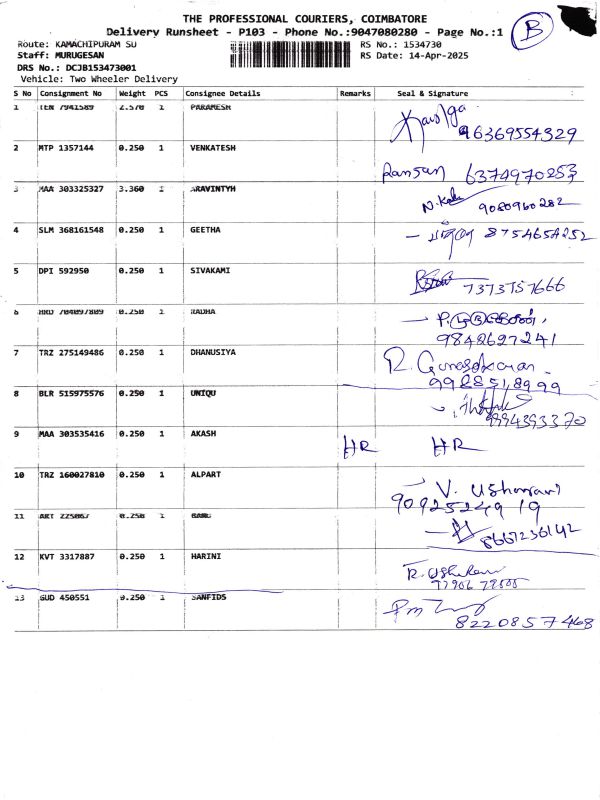 THE PROFESSIONAL COURIERS, COIMBATORE
B
Delivery Runsheet - P103 - Phone No.:9047080280 - Page No.:1
Route: KAMACHIPURAM SU RS No.: 1534730
Staff: MURUGESAN RS Date: 14-Apr-2025
DRS No.: DCJB153473001
Vehicle: Two Wheeler Delivery
S No Consignment No Weight PCS Consignee Details Remarks Seal & Signature
1 TEN 7941589 2.570 1 PARAMESH
96369554329
2 MTP 1357144 0.250 1 VENKATESH
6374970253
3 MAA 303325327 3.360 1 ARAVINTYH
9080960282
4 SLM 368161548 0.250 1 GEETHA
8754654252
5 DPI 592950 0.250 1 SIVAKAMI
7373757666
6 0.250 1 RADHA
9842627241
7 TRZ 275149486 0.250 1 DHANUSIYA R. Gunasekaran
9928518999
8 BLR 515975576 0.250 1 UNIQU
9994393370
9 MAA 303535416 0.250 1 AKASH HR HR
10 TRZ 160027810 0.250 1 ALPART V.
9092524919
11 ART 225067 0.250 1
8667236142
12 KVT 3317887 0.250 1 HARINI
13 GUD 450551 0.250 1 SANFIDS
8220857468